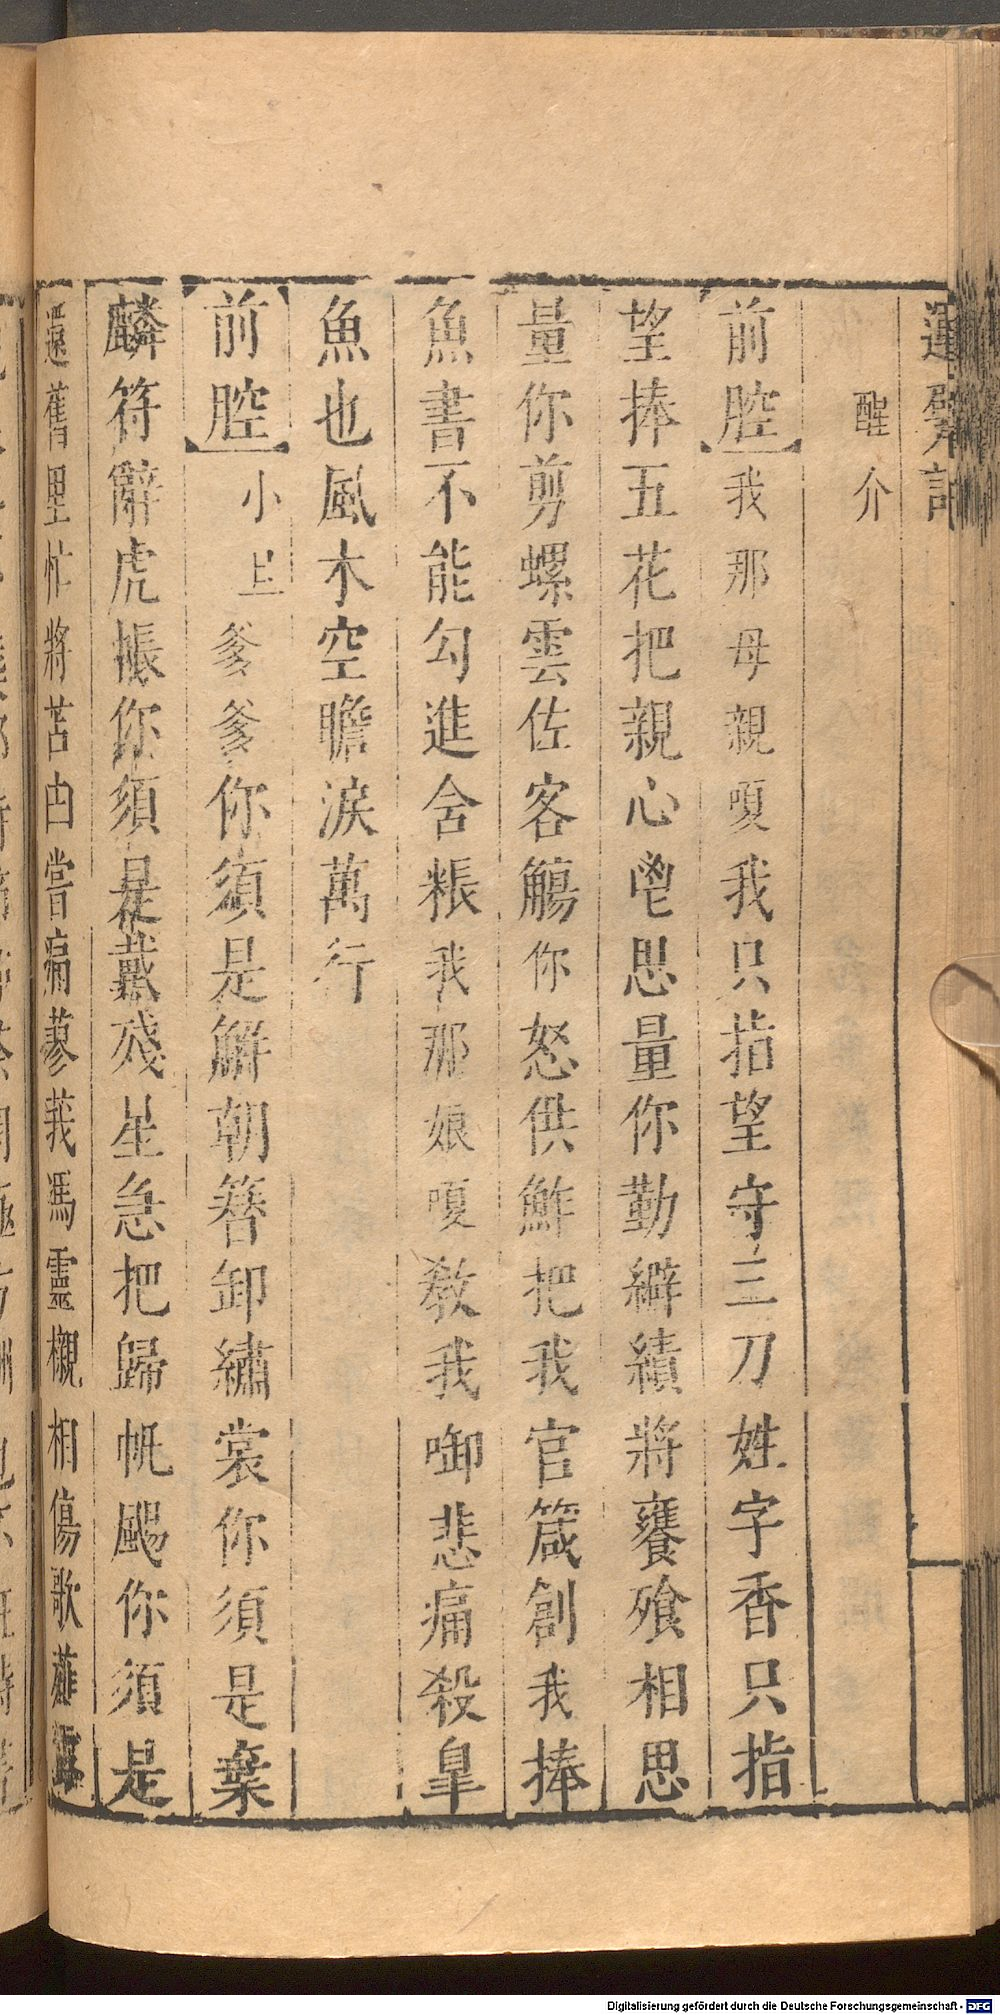 運甓記
醒介
前腔 我那母親嗄我只指望守三刀姓字香只指
望捧五花把親心鬯思量你勤緶績將饔飧相思
量你剪螺雲佐客觴你怒供鮓把我官箴創我捧
魚書不能勾進舍粻我那娘嗄教我啣悲痛殺皐
魚也風木空瞻淚萬行
前腔 小旦爹爹你須是解朝簪卸繡裳你須是棄
麟符辭虎帳你須是戴殘星急把歸帆颺你須是
還舊里忙將苫凷嘗痛蓼莪馮靈櫬相傷歌薤露
Digitalisierung gefördert durch die Deutsche Forschungsgemeinschaft - DFG